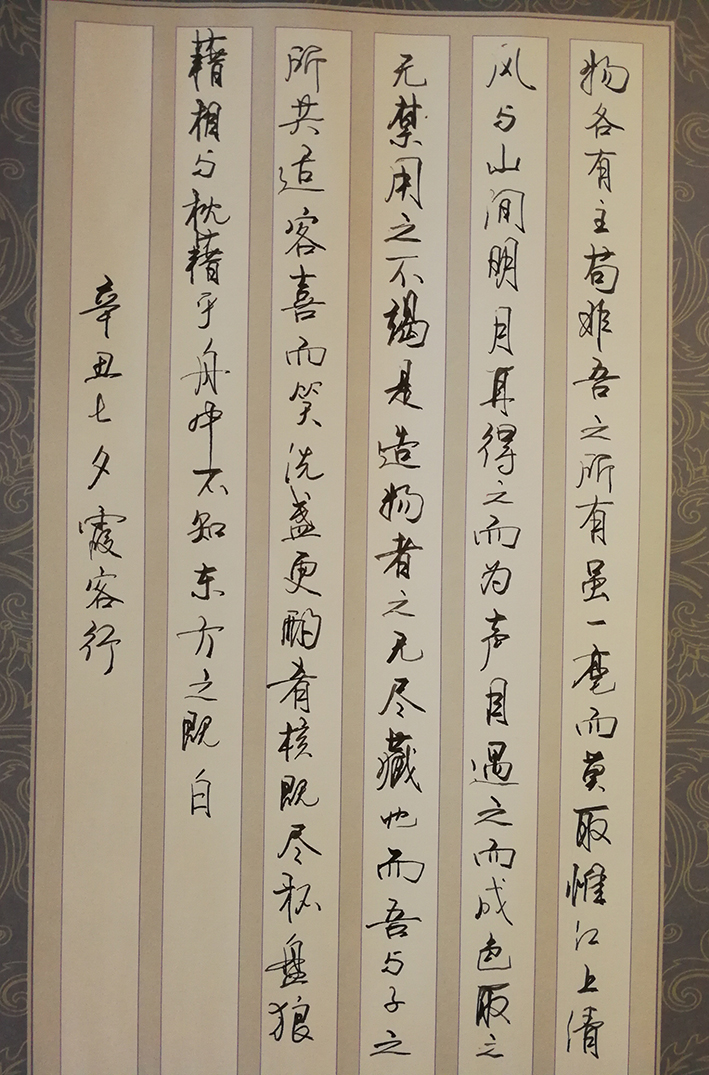 物各有主苟非吾之所有虽一毫而莫取惟江上清
风与山间明月耳得之而为声目遇之而成色取之
无禁用之不竭是造物者之无尽藏也而吾与子之
所共适客喜而笑洗盏更酌肴核既尽杯盘狼
藉相与枕藉乎舟中不知东方之既白
辛丑七夕霞客行